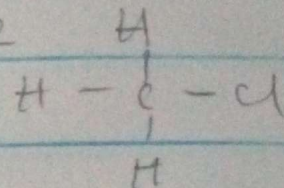 H
H - C - Cl
H